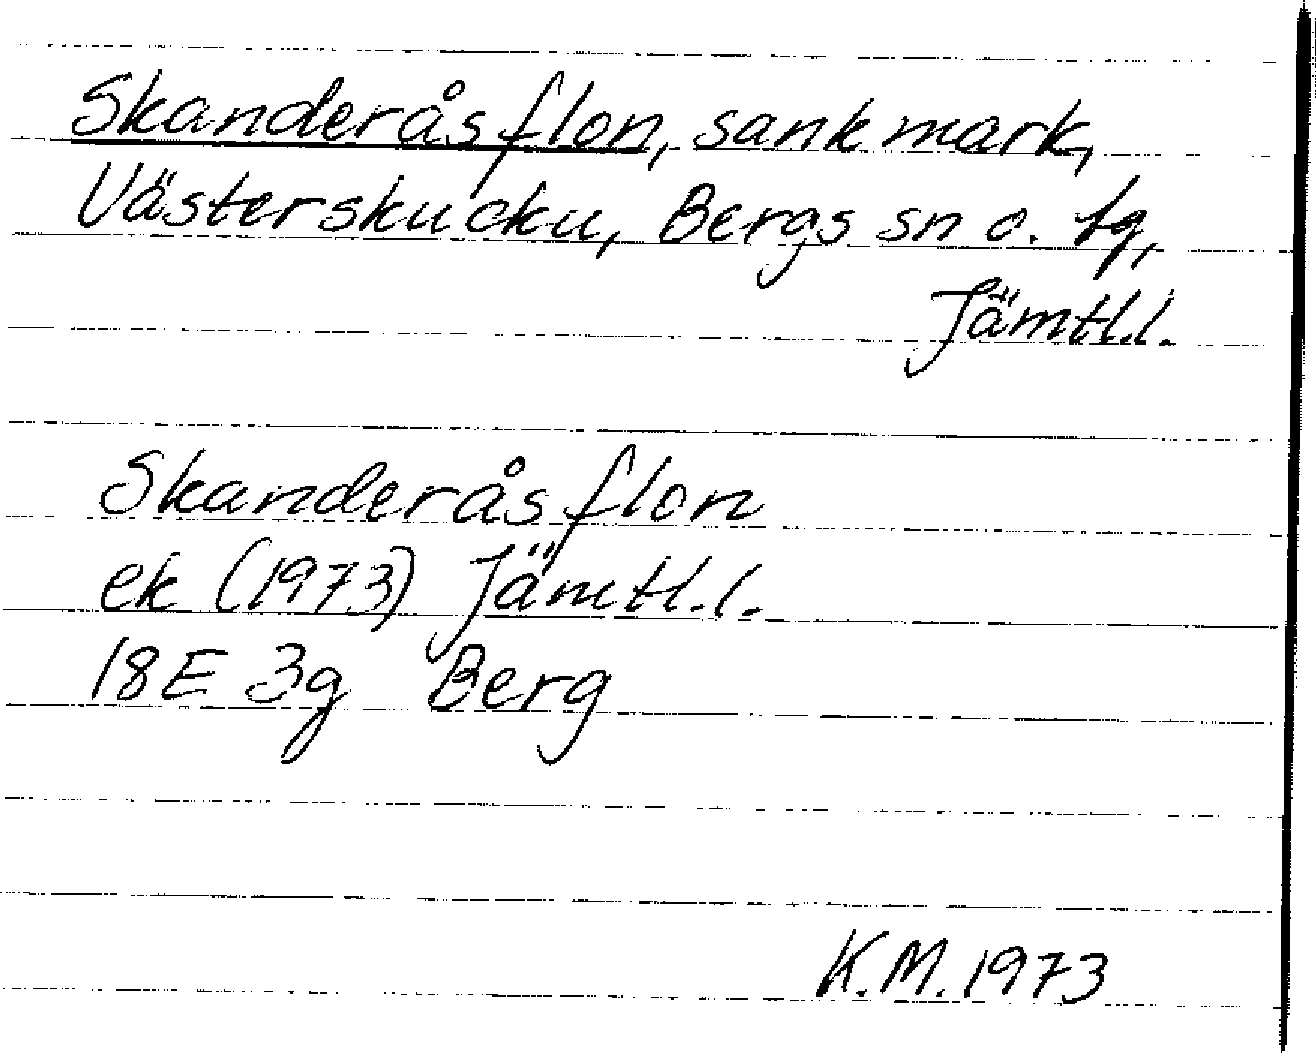 Skanderåsflon, sankmark,
Västerskucku, Bergs sn o. tg,
Jämtl.l.
Skanderåsflon
ek (1973) Jämtl.l.
18E 3g Berg
K.M. 1973